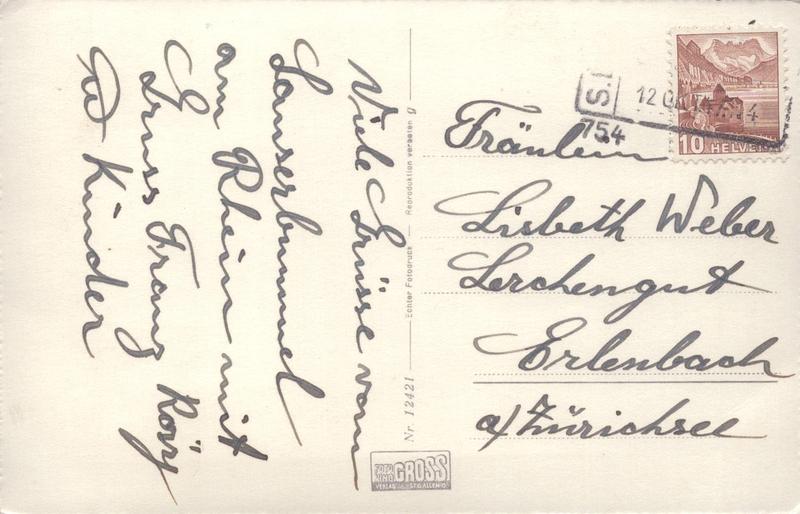 Viele Grüsse vom
Lauserbummel
am Rhein mit
Gruss Franz Rösy
u Kinder
Echter Fotodruck — Reproduktion verboten
Nr. 12421
GROSS
VERLAG ST. GALLEN
12
754
10 HELVETIA
Fräulein
Lisbeth Weber
Lerchengut
Erlenbach
a/Zürichsee